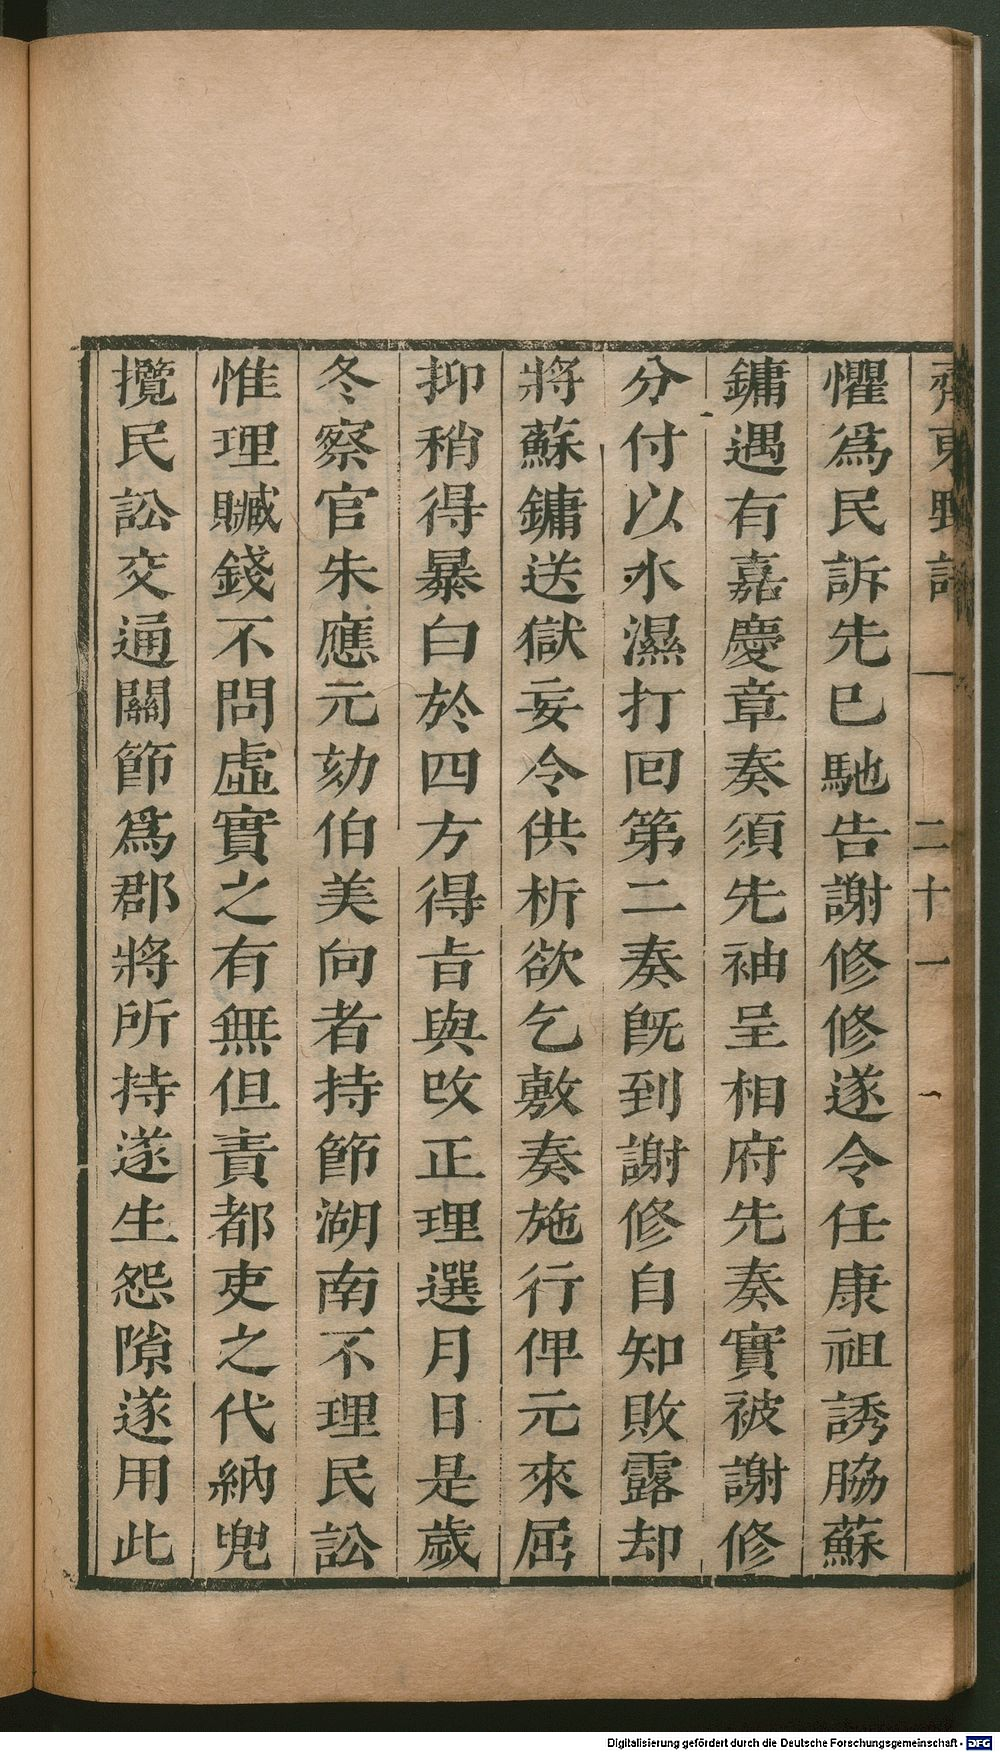 齊東野語 一 二十一
懼爲民訴先已馳告謝修修遂令任康祖誘脇蘇
鏞遇有嘉慶章奏須先袖呈相府先奏實被謝修
分付以水濕打回第二奏旣到謝修自知敗露却
將蘇鏞送獄妄令供析欲乞敷奏施行俾元來屈
抑稍得暴白於四方得旨與改正理選月日是歲
冬察官朱應元劾伯美向者持節湖南不理民訟
惟理贓錢不問虛實之有無但責都吏之代納兜
攬民訟交通關節爲郡將所持遂生怨隙遂用此
Digitalisierung gefördert durch die Deutsche Forschungsgemeinschaft - DFG